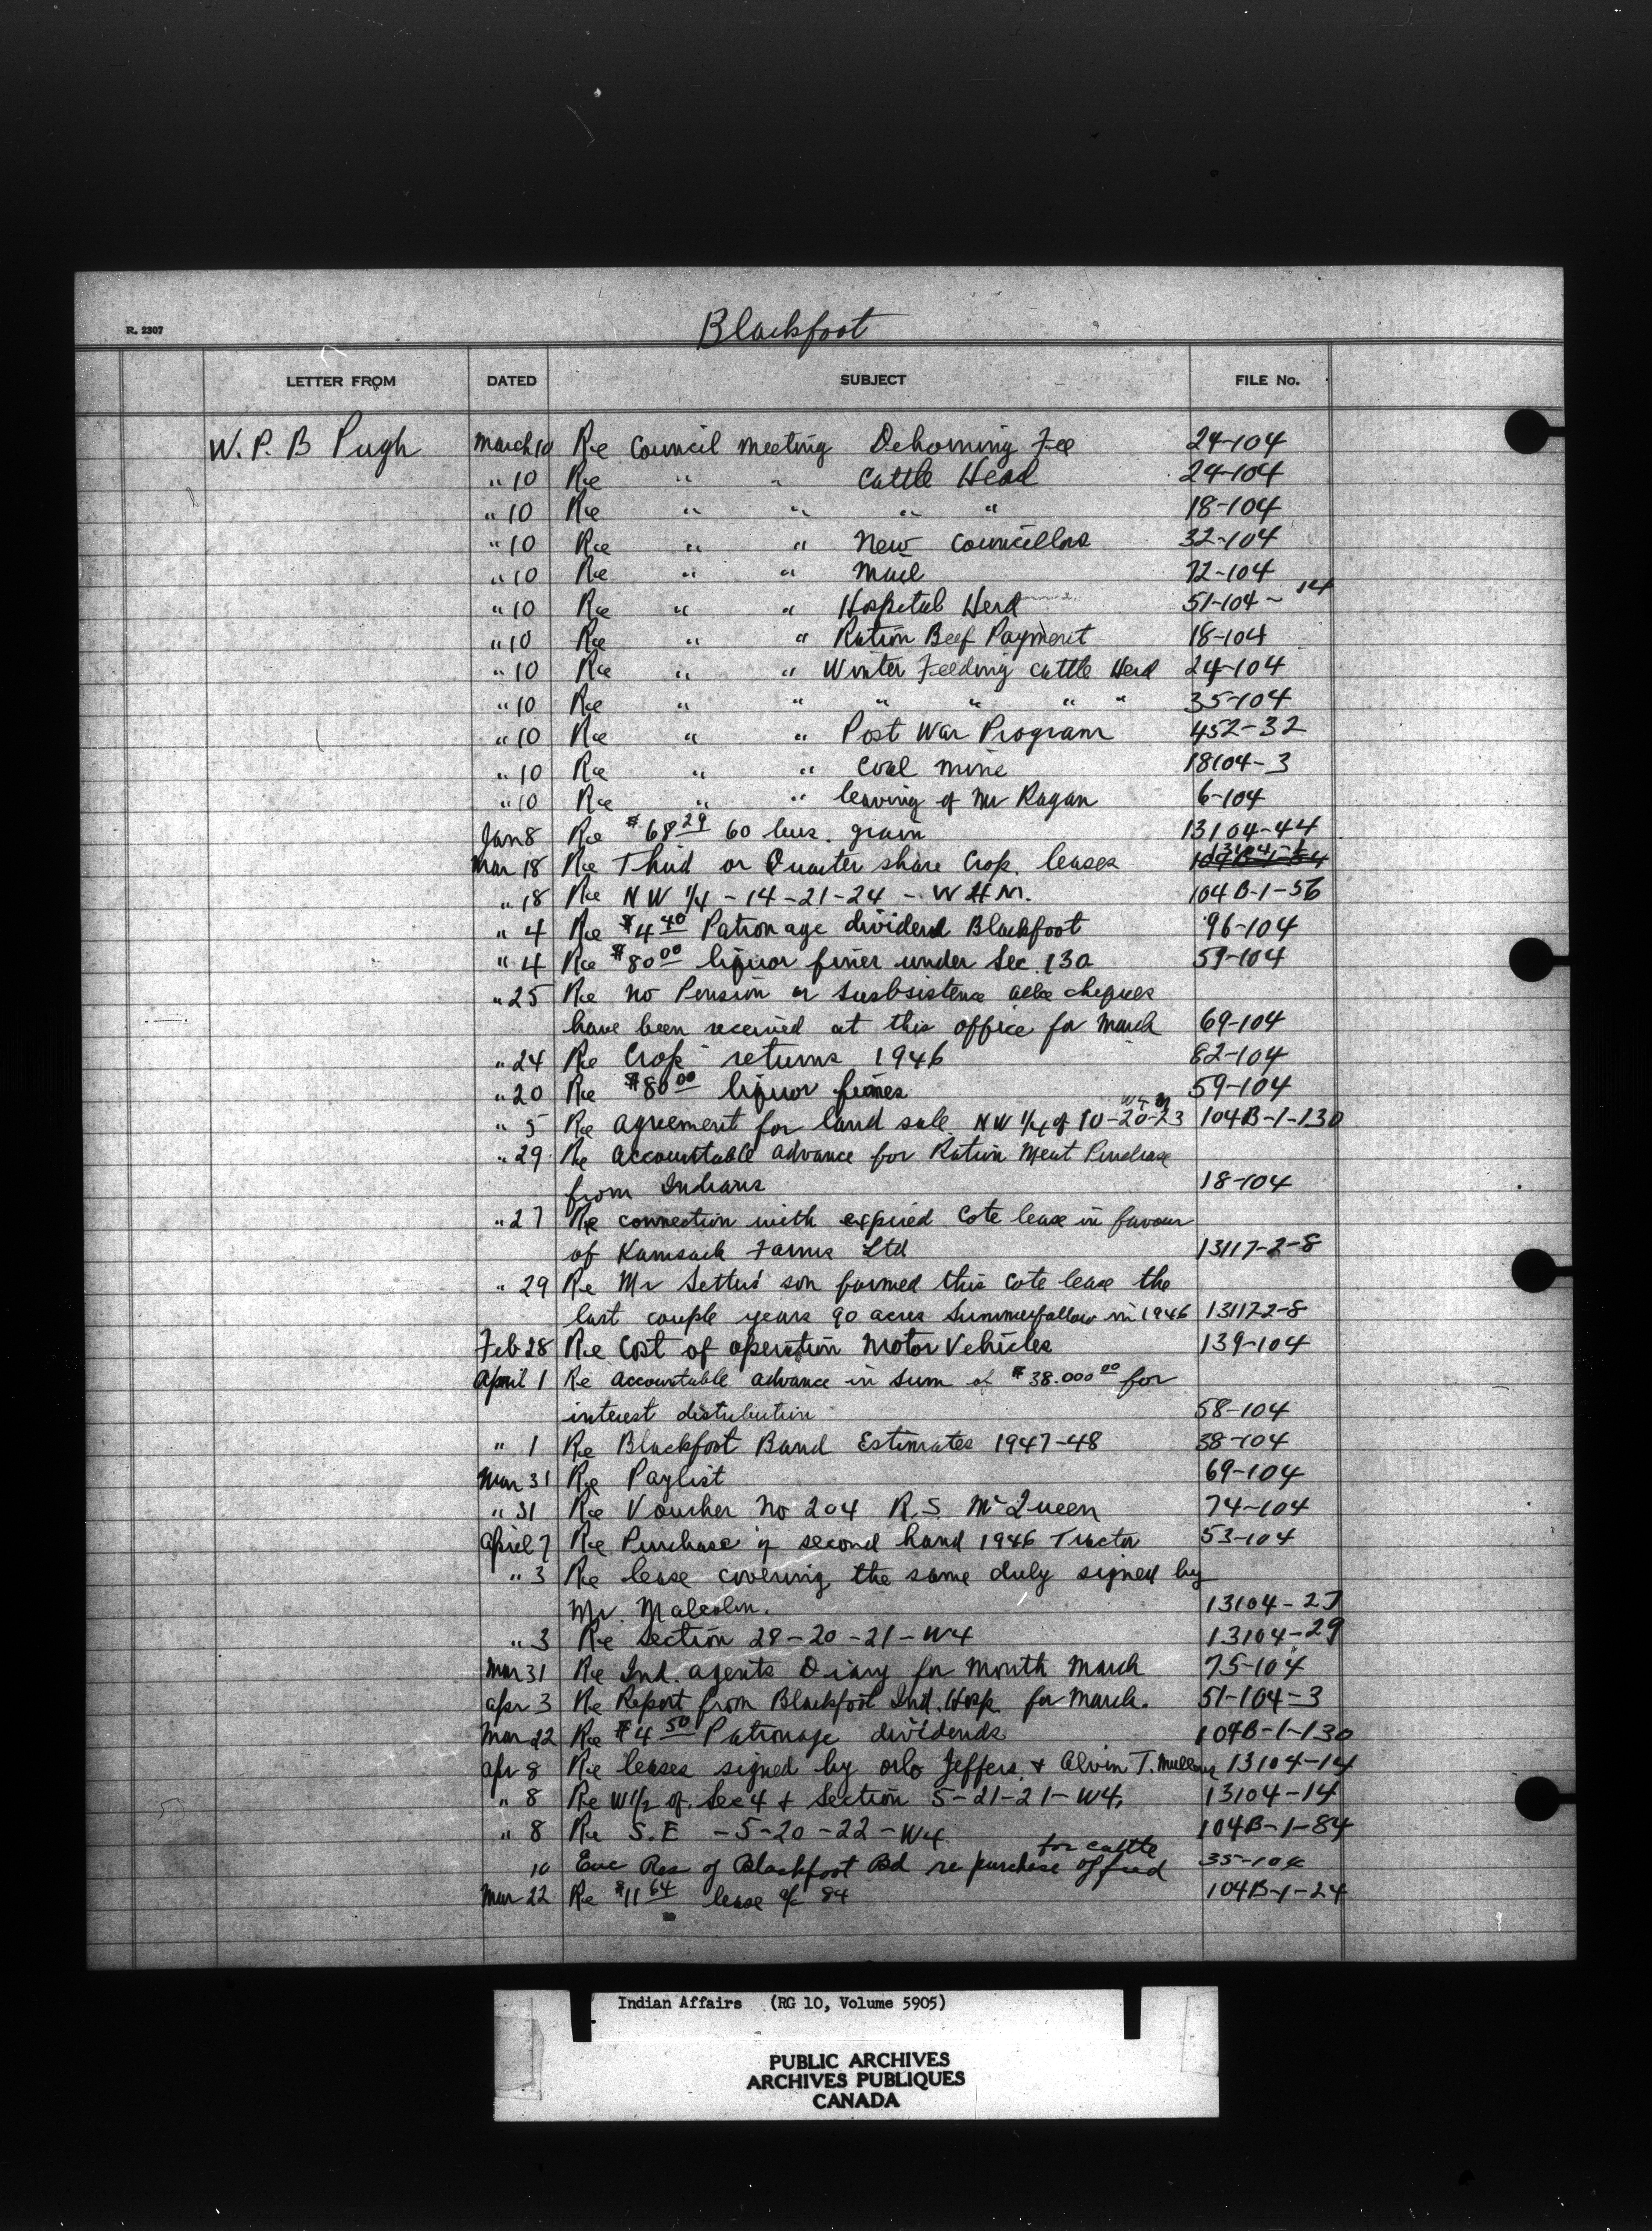 R. 2307
Blackfoot
LETTER FROM DATED SUBJECT FILE No.
W. P. B Pugh March 10 Re Council meeting Dehorning Fee 24-104
" 10 Re " " Cattle Head 24-104
" 10 Re " " " " 18-104
" 10 Re " " New Councillors 32-104
" 10 Re " " Mail 72-104
" 10 Re " " Hospital Herd 51-104-14
" 10 Re " " Ration Beef Payment 18-104
" 10 Re " " Winter Feeding Cattle Herd 24-104
" 10 Re " " " " " " 35-104
" 10 Re " " Post War Program 452-32
" 10 Re " " Coal mine 18104-3
" 10 Re " " leaving of Mr Ragan 6-104
Jan 8 Re $68 29 60 bus. grain 13104-44
Mar 18 Re Third or Quarter share Crop leases
" 18 Re NW 1/4 - 14-21-24 - W4M. 104B-1-56
" 4 Re $4 40 Patronage dividend Blackfoot 96-104
" 4 Re $80 00 liquor fines under Sec. 130 59-104
" 25 Re no Pension or Susbsistence allce cheques
have been received at this office for March 69-104
" 24 Re Crop returns 1946 82-104
" 20 Re $80 00 liquor fines 59-104
" 5 Re agreement for land sale NW 1/4 of 10-20-23 W4M 104B-1-130
" 29 Re accountable advance for Ration Meat Purchase
from Indians 18-104
" 27 Re connection with expired Cote lease in favour
of Kamsack Farms Ltd 13117-2-8
" 29 Re Mr Settus' son farmed this Cote lease the
last couple years 90 acres Summerfallow in 1946 13117-2-8
Feb 28 Re Cost of operation Motor Vehicles 139-104
April 1 Re accountable advance in sum of $38.000 00 for
interest distribution 58-104
" 1 Re Blackfoot Band Estimates 1947-48 38-104
Mar 31 Re Paylist 69-104
" 31 Re Voucher No 204 R.S. McQueen 74-104
April 7 Re Purchase of second hand 1946 Tractor 53-104
" 3 Re lease covering the same duly signed by
Mr. Malcolm. 13104-27
" 3 Re Section 28-20-21-W4 13104-29
Mar 31 Re Ind. agents Diary for month March 75-104
apr 3 Re Report from Blackfoot Ind. Hosp. for March. 51-104-3
Mar 22 Re $4 50 Patronage dividends 104B-1-130
apr 8 Re leases signed by Orlo Jeffers & Alvin T. 13104-14
" 8 Re W1/2 of Sec 4 & Section 5-21-21-W4, 13104-14
" 8 Re S.E -5-20-22-W4 104B-1-84
10 Enc Res of Blackfoot Bd re purchase of feed for cattle 35-104
Mar 22 Re $11 64 lease of 84 104B-1-24
Indian Affairs (RG 10, Volume 5905)
PUBLIC ARCHIVES
ARCHIVES PUBLIQUES
CANADA